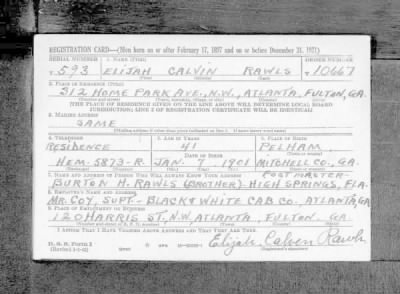 REGISTRATION CARD—(Men born on or after February 17, 1897 and on or before December 31, 1921)
SERIAL NUMBER 1. NAME (Print) ORDER NUMBER
T 593 ELIJAH CALVIN RAWLS T 10667
(First) (Middle) (Last)
2. PLACE OF RESIDENCE (Print)
312 HOME PARK AVE., N.W., ATLANTA, FULTON, GA.
(Number and street) (Town, township, village, or city) (County) (State)
[THE PLACE OF RESIDENCE GIVEN ON THE LINE ABOVE WILL DETERMINE LOCAL BOARD
JURISDICTION; LINE 2 OF REGISTRATION CERTIFICATE WILL BE IDENTICAL]
3. MAILING ADDRESS
SAME
[Mailing address if other than place indicated on line 2. If same insert word same]
4. TELEPHONE 5. AGE IN YEARS 6. PLACE OF BIRTH
RESIDENCE 41 PELHAM
DATE OF BIRTH
HEM-5873-R JAN. 7 1901 MITCHELL CO., GA.
7. NAME AND ADDRESS OF PERSON WHO WILL ALWAYS KNOW YOUR ADDRESS POSTMASTER
BURTON H. RAWLS (BROTHER) HIGH SPRINGS, FLA.
8. EMPLOYER'S NAME AND ADDRESS
MR. COY, SUPT - BLACK & WHITE CAB CO., ATLANTA, GA
9. PLACE OF EMPLOYMENT OR BUSINESS
120 HARRIS ST. N.W. ATLANTA, FULTON. GA.
(Number and street or R. F. D. number) (Town) (County) (State)
I AFFIRM THAT I HAVE VERIFIED ABOVE ANSWERS AND THAT THEY ARE TRUE.
D. S. S. Form 1
Elijah Calvin Rawls